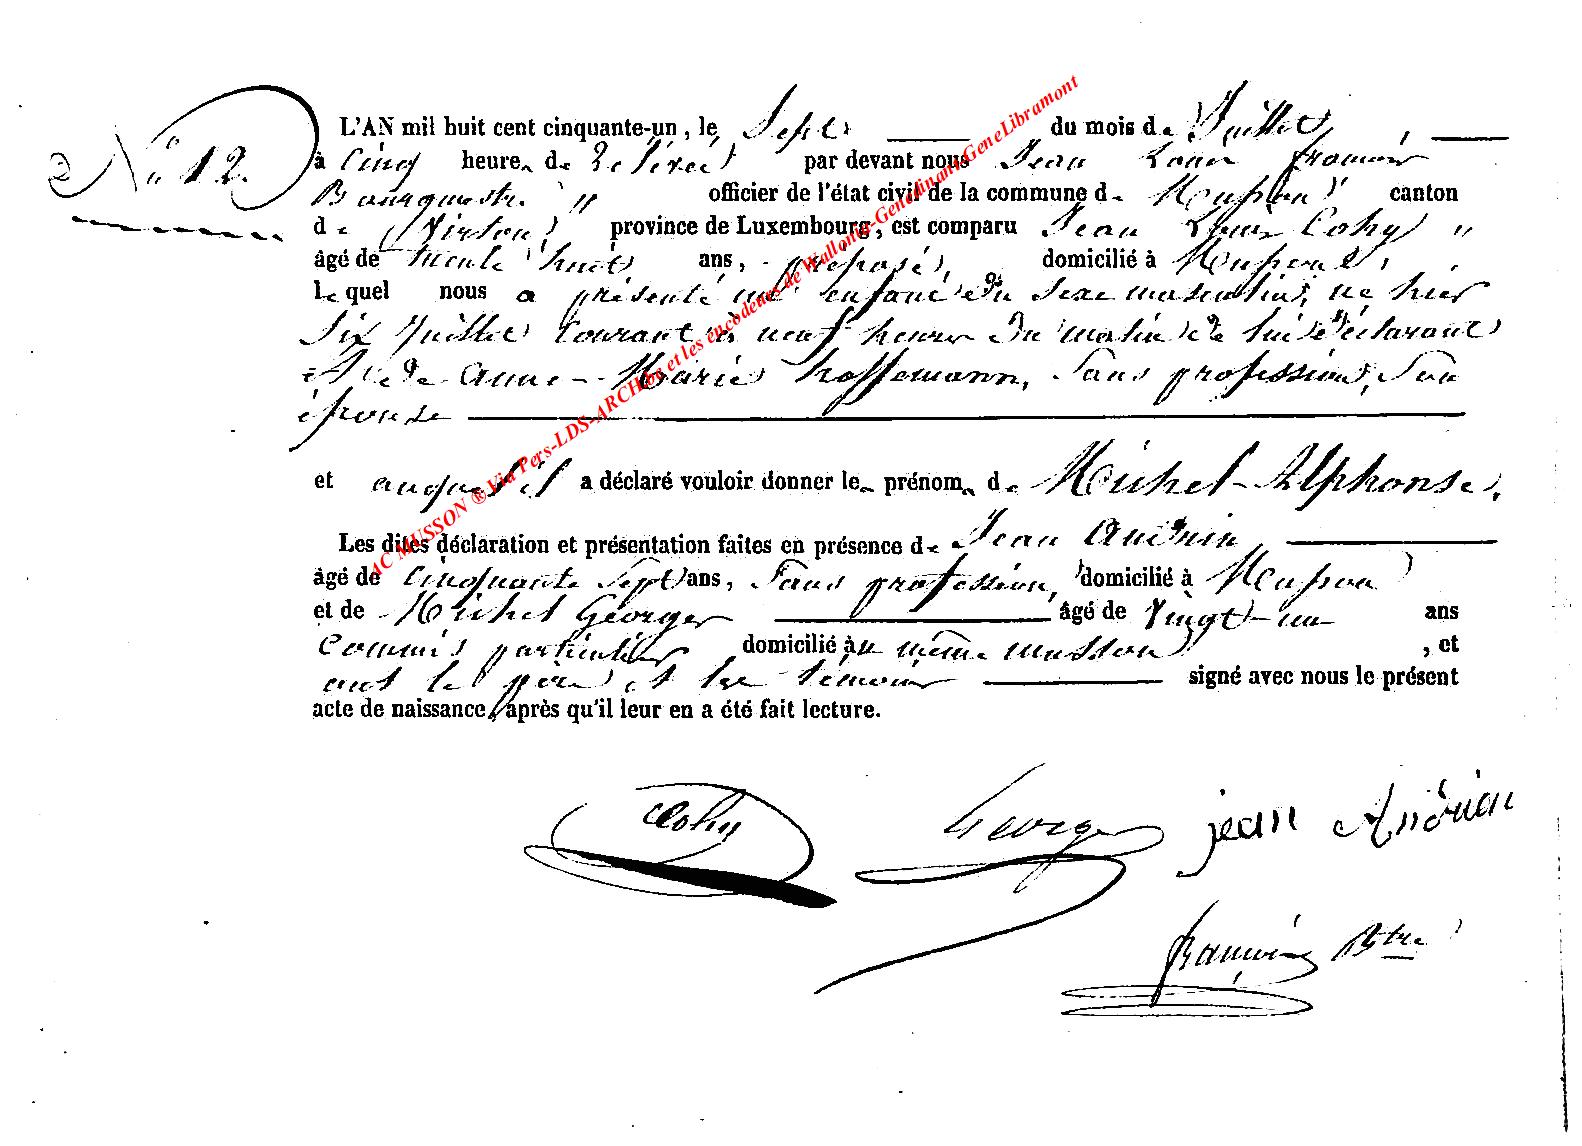 N° 12.
L'AN mil huit cent cinquante-un, le Sept du mois de Juillet,
à Cinq heures de relevée par devant nous Jean Louis François
Bourgmestre officier de l'état civil de la commune de Musson canton
de Virton province de Luxembourg, est comparu Jean Louis Cohy
âgé de trente huit ans, préposé, domicilié à Musson,
lequel nous a présenté un enfant du sexe masculin, né hier
Six Juillet Courant à neuf heures du matin de lui déclarant
et de Anne-Marie Hoffemann, Sans profession, Son
épouse
et auquel il a déclaré vouloir donner les prénoms de Michel-Alphonse.
Les dites déclaration et présentation faites en présence de Jean
âgé de Cinquante Sept ans, Sans profession, domicilié à Musson
et de Michel Georges âgé de Vingt-un ans
Commis particulier domicilié au même musson, et
ont le père et les témoins signé avec nous le présent
acte de naissance, après qu'il leur en a été fait lecture.
Cohy Georges jean
François Btre
AC MUSSON ® Via Pers-LDS-ARCH.be et les encodeurs de Wallonia-Genedinant-GeneLibramont